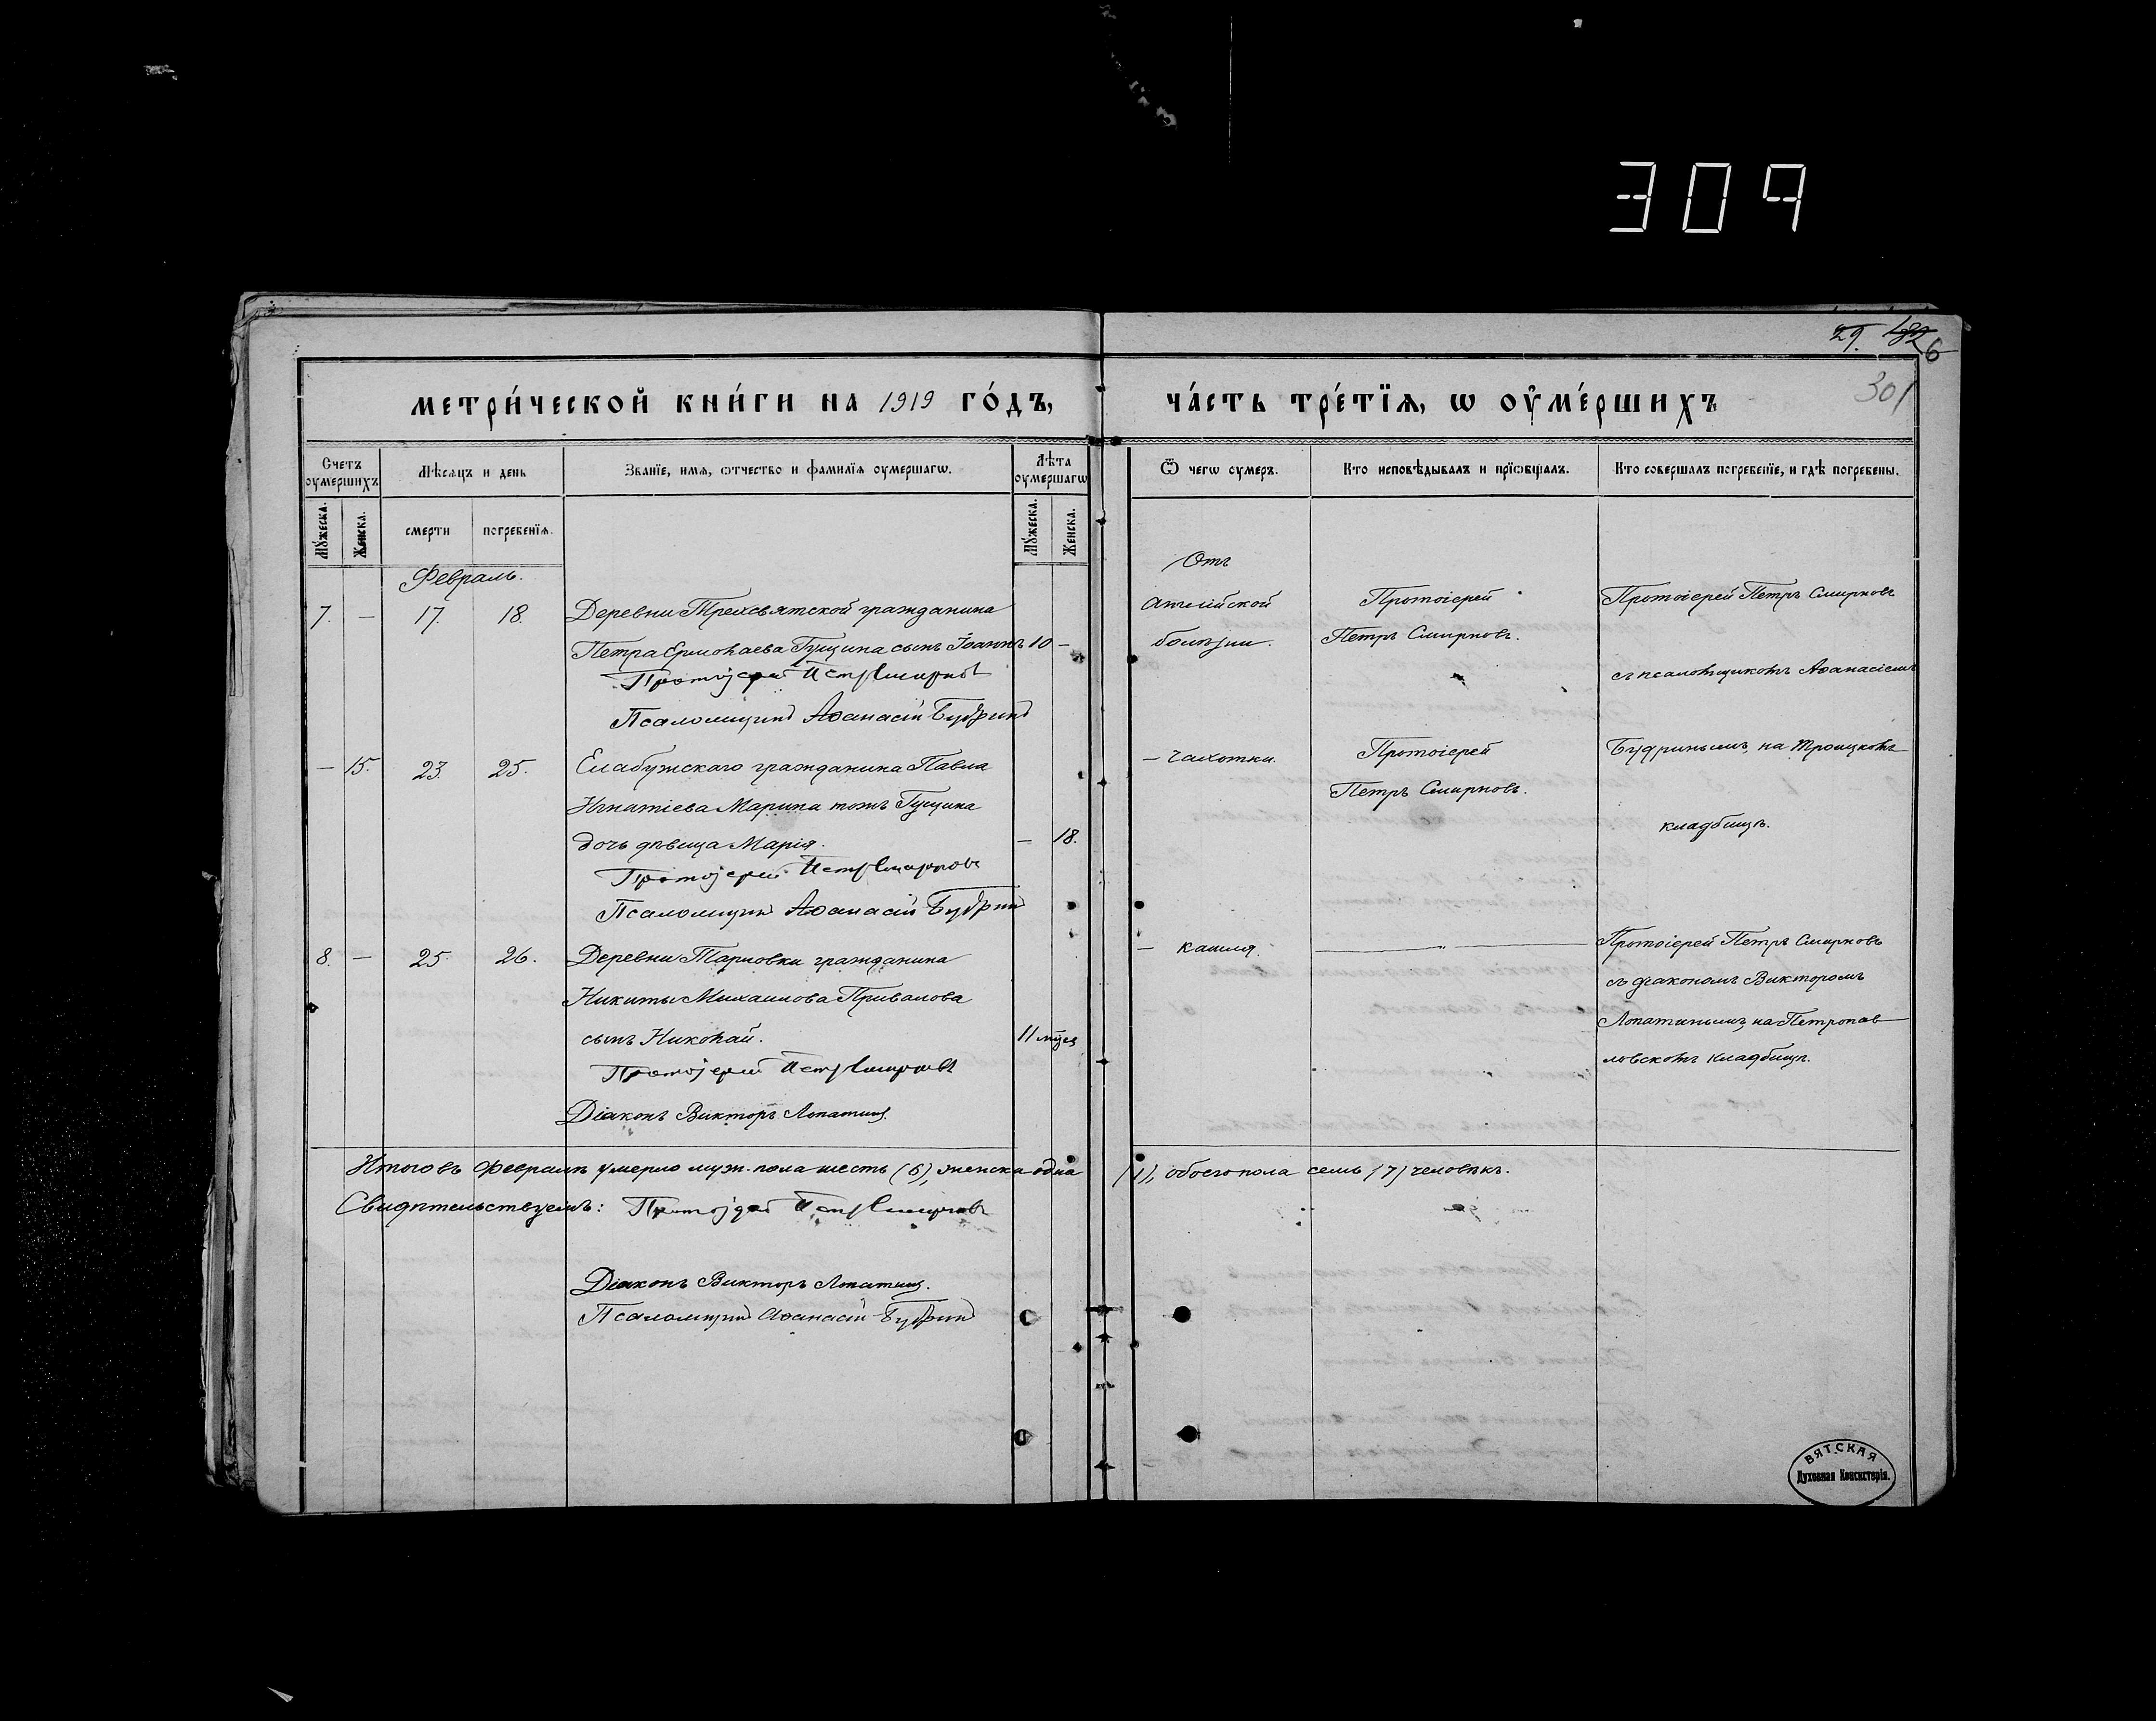 309
29. 182 6
301
метри́ческой кни́ги на 1919 го́дъ,
ча́сть тре́тїѧ, ѡ оу҆ме́ршихъ
Счетъ оумершихъ
Мѣсѧцъ и день
Званїе, имѧ, ѡтчество и фамилїѧ оумершагѡ.
Лѣта оумершагѡ
Ѿ чегѡ оумеръ.
Кто исповѣдывалъ и прїѡбщалъ.
Кто совершалъ погребенїе, и гдѣ погребены.
Мꙋжеска.
Женска.
смерти
погребенїѧ.
Мꙋжеска.
Женска.
Февраль.
7. — 17. 18. Деревни Трехсвятской гражданина
Петра Ермолаева Гущина сынъ Іоаннъ 10 —
Протоіерей Петръ Смирновъ
Псаломщикъ Аѳанасій Будринъ
Отъ
англійской
болѣзни.
Протоіерей
Петръ Смирновъ.
Протоіерей Петръ Смирновъ
съ псаломщикомъ Аѳанасіемъ
Будринымъ, на Троицкомъ
кладбищѣ.
— 15. 23. 25. Елабужскаго гражданина Павла
Игнатіева Марина тожъ Гущина
дочь дѣвица Марія. — 18.
Протоіерей Петръ Смирновъ
Псаломщикъ Аѳанасій Будринъ
— чахотки.
Протоіерей
Петръ Смирновъ.
8. — 25. 26. Деревни Тарловки гражданина
Никиты Михаилова Привалова
сынъ Николай. 11 мѣсяц
Протоіерей Петръ Смирновъ
Діаконъ Викторъ Лопатинъ.
— кашля.
Протоіерей Петръ Смирновъ
съ діакономъ Викторомъ
Лопатинымъ, на Петропав
ловскомъ кладбищѣ.
Итого въ Февралѣ умерло муж. пола шесть (6), женска одна (1), обоего пола семь (7) человѣкъ.
Свидѣтельствуемъ: Протоіерей Петръ Смирновъ
Діаконъ Викторъ Лопатинъ.
Псаломщикъ Аѳанасій Будринъ
ВЯТСКАЯ
Духовная Консисторія.